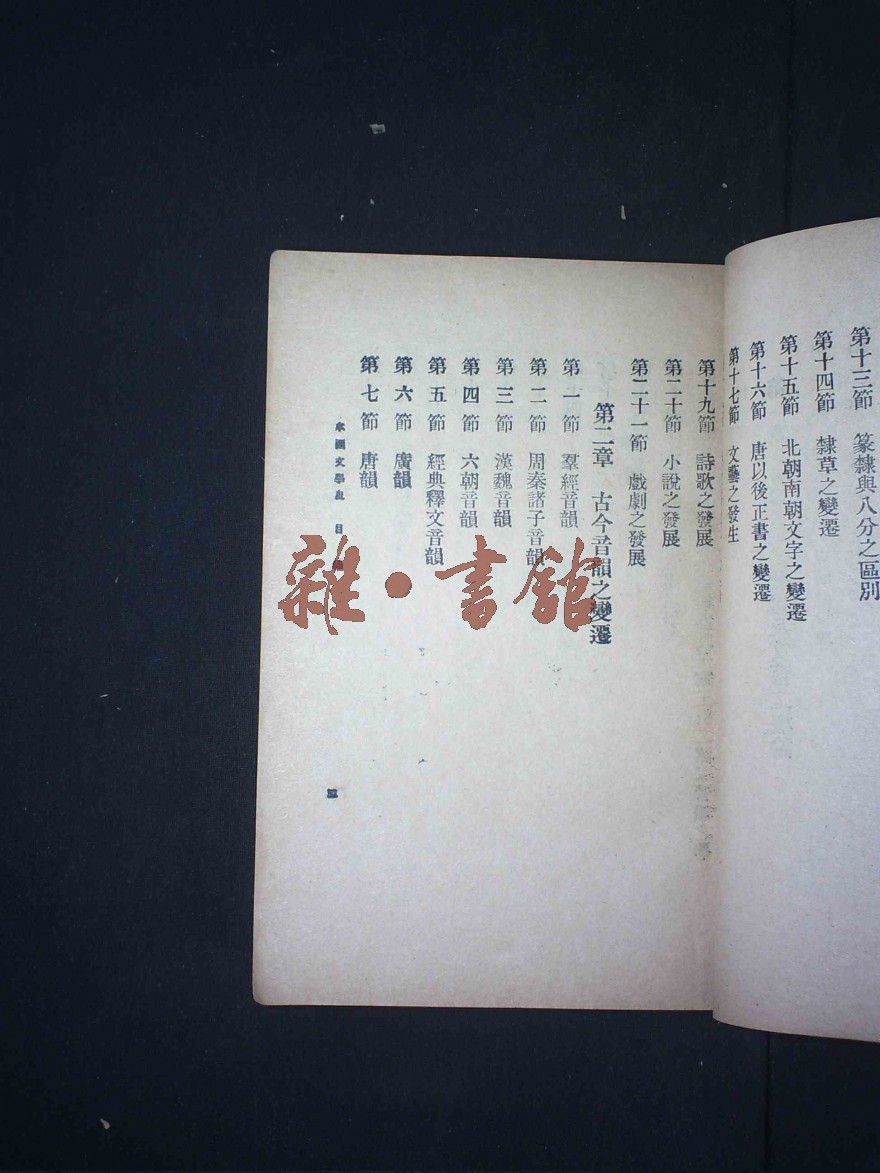 第十三節　篆隸與八分之區別
第十四節　隸草之變遷
第十五節　北朝南朝文字之變遷
第十六節　唐以後正書之變遷
第十七節　文藝之發生
第十九節　詩歌之發展
第二十節　小說之發展
第二十一節　戲劇之發展
第二章　古今音韻之變遷
第一節　羣經音韻
第二節　周秦諸子音韻
第三節　漢魏音韻
第四節　六朝音韻
第五節　經典釋文音韻
第六節　廣韻
第七節　唐韻
國文學史　目
三
雜·書館